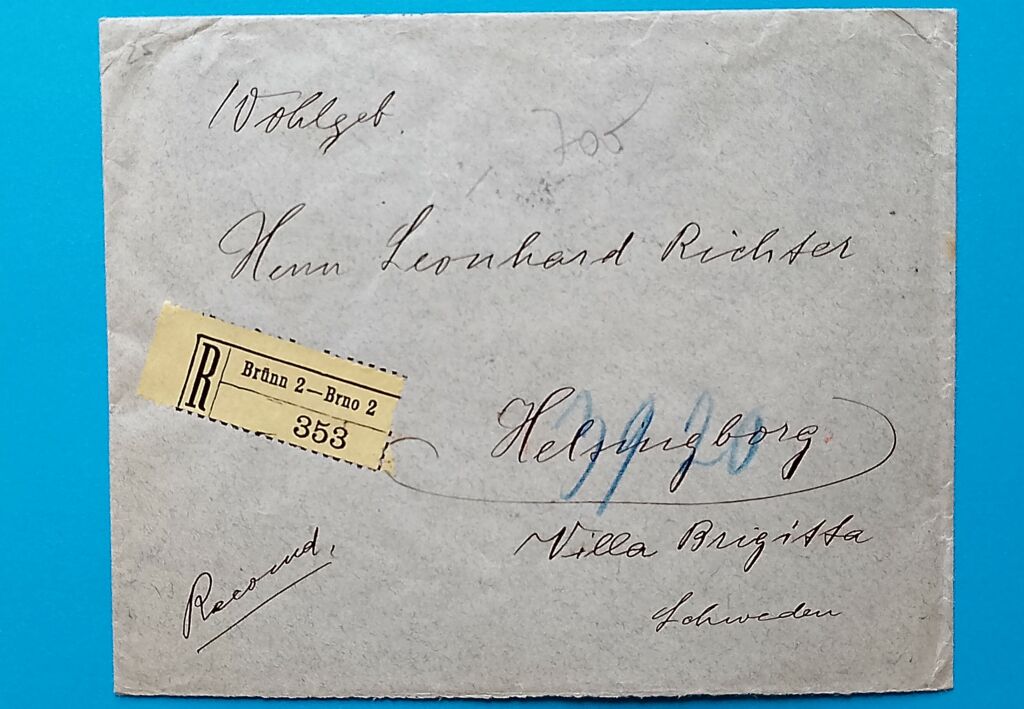 25
Wohlgeb.
705
Herrn Leonhard Richter
R Brünn 2—Brno 2
353
Helsingborg
Villa Brigitta
Schweden
Recomd,